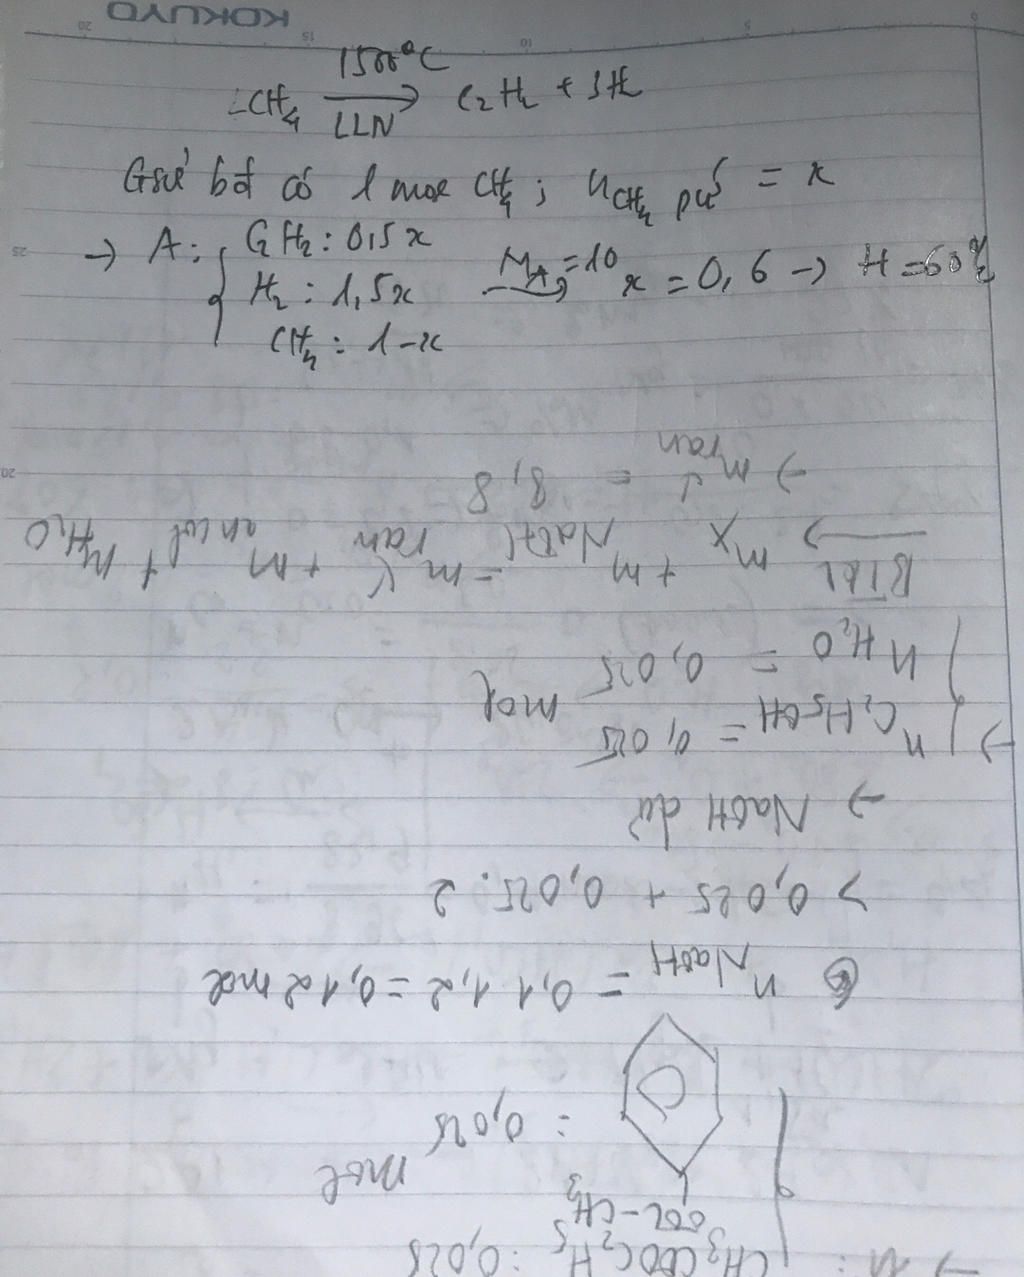 1500°C
2CH4 → C2H2 + 3H2
LLN
Gsử bđ có 1 mol CH4 ; nCH4 pứ = x
→ A: C2H2 : 0,5x
H2 : 1,5x
CH4 : 1-x
MA = 10 → x = 0,6 → H = 60%
KOKUYO
→ X : CH3COOC2H5 : 0,025
OOC-CH3 : 0,025 mol
nNaOH = 0,1.1,2 = 0,12 mol
> 0,025 + 0,025.2
→ NaOH dư
→ nC2H5OH = 0,025 mol
nH2O = 0,025
BTKL → mX + mNaOH = mrắn + mancol + mH2O
→ mrắn = 8,8
0
5
10
15
20
25
20